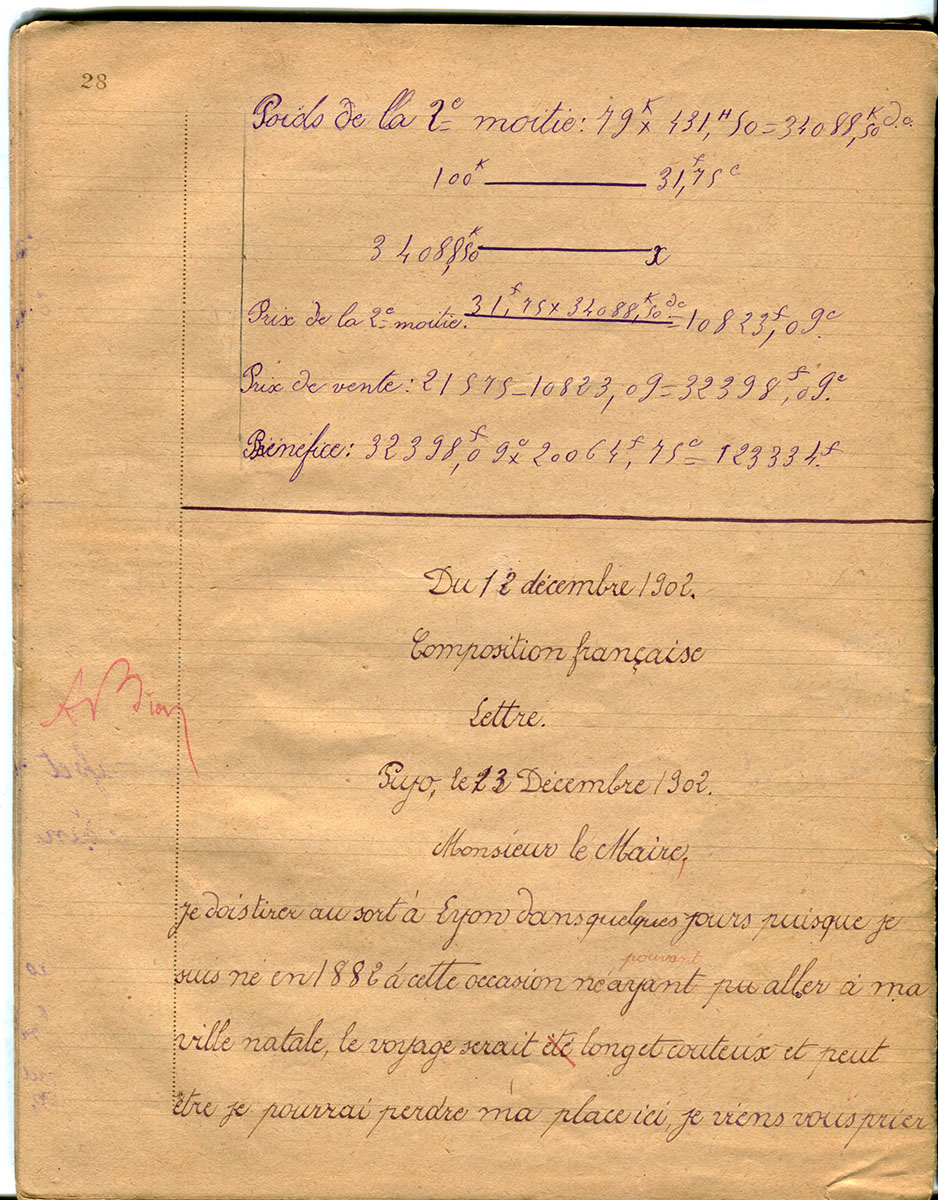 28
Poids de la 2e moitie: 79K x 431,H50 = 34088,K50 d.c.
100K ——— 31,f75c
34088,K50 ——— x
Prix de la 2e moitie. 31,f75 x 34088,K50 dc = 10823f,09c.
Prix de vente: 21575 = 10823,09 = 32398f,09c.
Bénéfice: 32398,f09c x 20064f,75c = 123334f.
Du 12 décembre 1902.
Composition française
Lettre.
AvBien
Puyo, le 23 Décembre 1902.
Monsieur le Maire,
Je dois tirer au sort à Lyon dans quelques jours puisque je
pouvant
suis né en 1882 à cette occasion n'ayant pu aller à ma
ville natale, le voyage serait été long et couteux et peut
être je pourrai perdre ma place ici, je viens vous prier